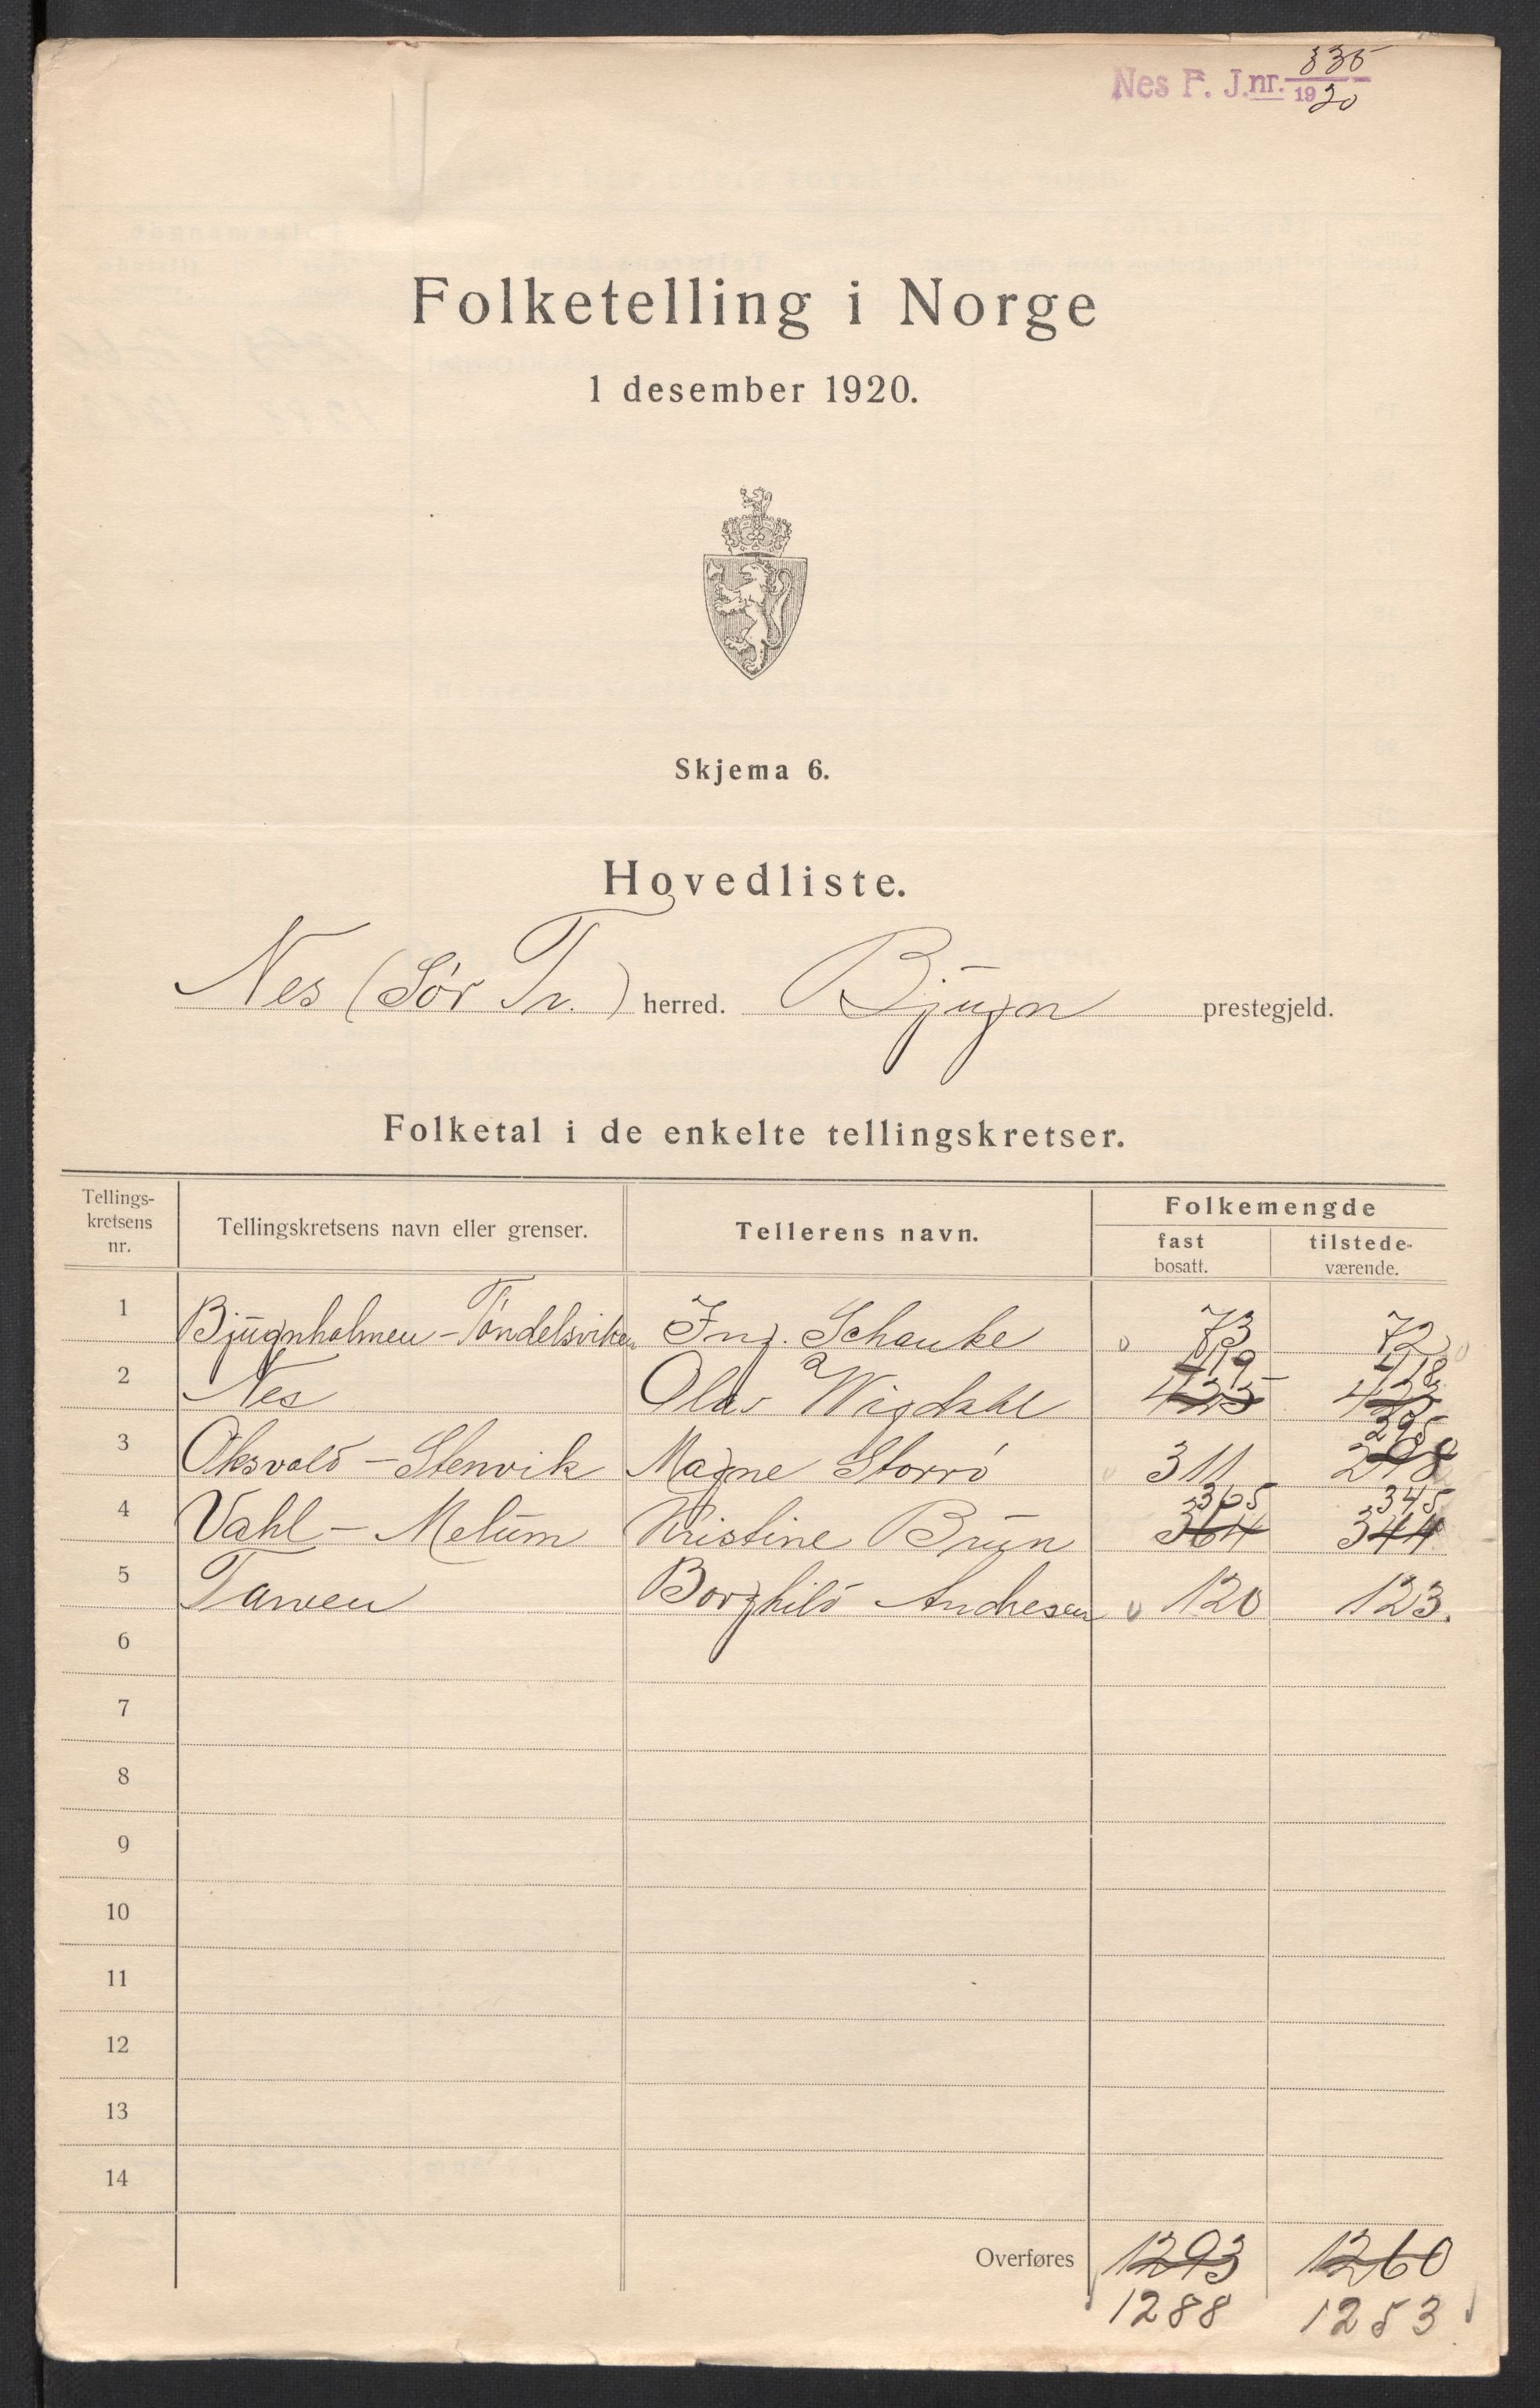 Nes F. J.nr. 335
1920
Folketelling i Norge
1 desember 1920.
Skjema 6.
Hovedliste.
Nes (Sör Tr.) herred. Bjugn prestegjeld.
Folketal i de enkelte tellingskretser.
Tellings-
kretsens
nr.
Tellingskretsens navn eller grenser.
Tellerens navn.
Folkemengde
fast
bosatt.
tilstede-
værende.
1 Bjugnholmen - Töndelsviken Ing. Schanke 73 72
419 418
2 Nes Olav Wigdahl 425 423
295
3 Oksvold - Stenvik Magne Storrö 311 298
365 345
4 Vahl - Melum Kristine Brun 364 344
5 Tarven Borghild Andresen 120 123.
6
7
8
9
10
11
12
13
14
Overføres 1293 1260
1288 1253